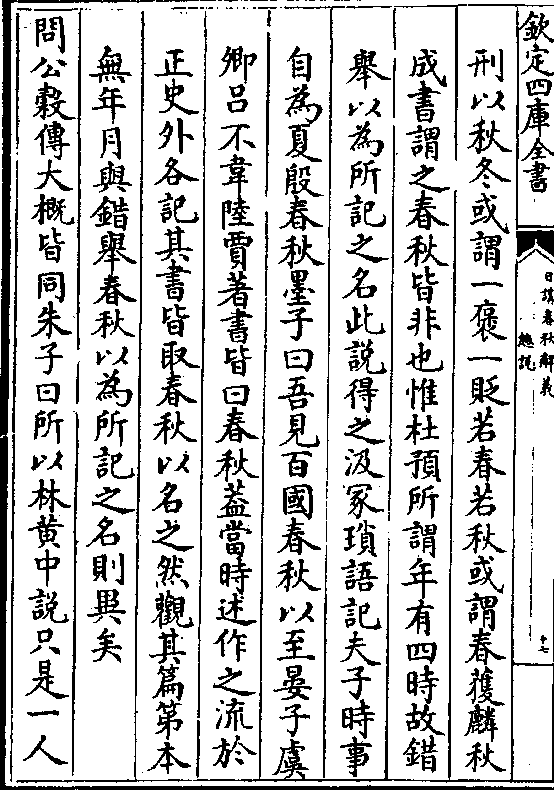 欽定四庫全書
日講春秋解義
總說
十七
刑以秋冬或謂一褒一貶若春若秋或謂春獲麟秋
成書謂之春秋皆非也惟杜預所謂年有四時故錯
舉以為所記之名此說得之汲冢瑣語記夫子時事
自為夏殷春秋墨子曰吾見百國春秋以至晏子虞
卿呂不韋陸賈著書皆曰春秋蓋當時述作之流於
正史外各記其書皆取春秋以名之然觀其篇第本
無年月與錯舉春秋以為所記之名則異矣
問公穀傳大概皆同朱子曰所以林黄中說只是一人